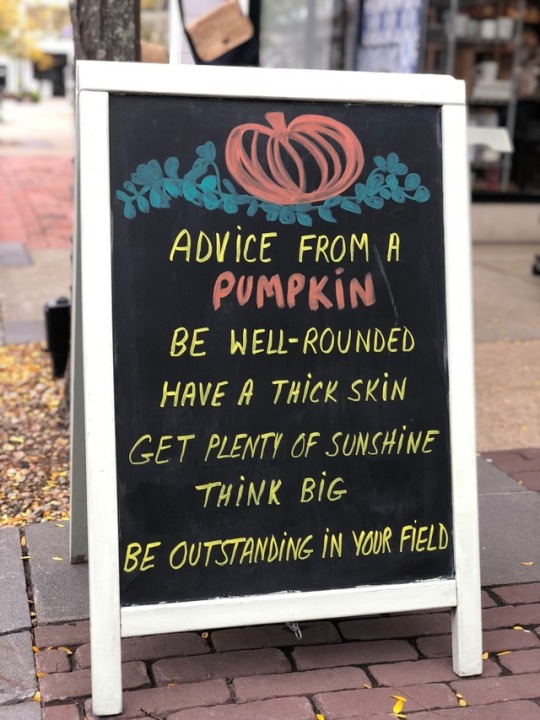 ADVICE FROM A
PUMPKIN
BE WELL-ROUNDED
HAVE A THICK SKIN
GET PLENTY OF SUNSHINE
THINK BIG
BE OUTSTANDING IN YOUR FIELD